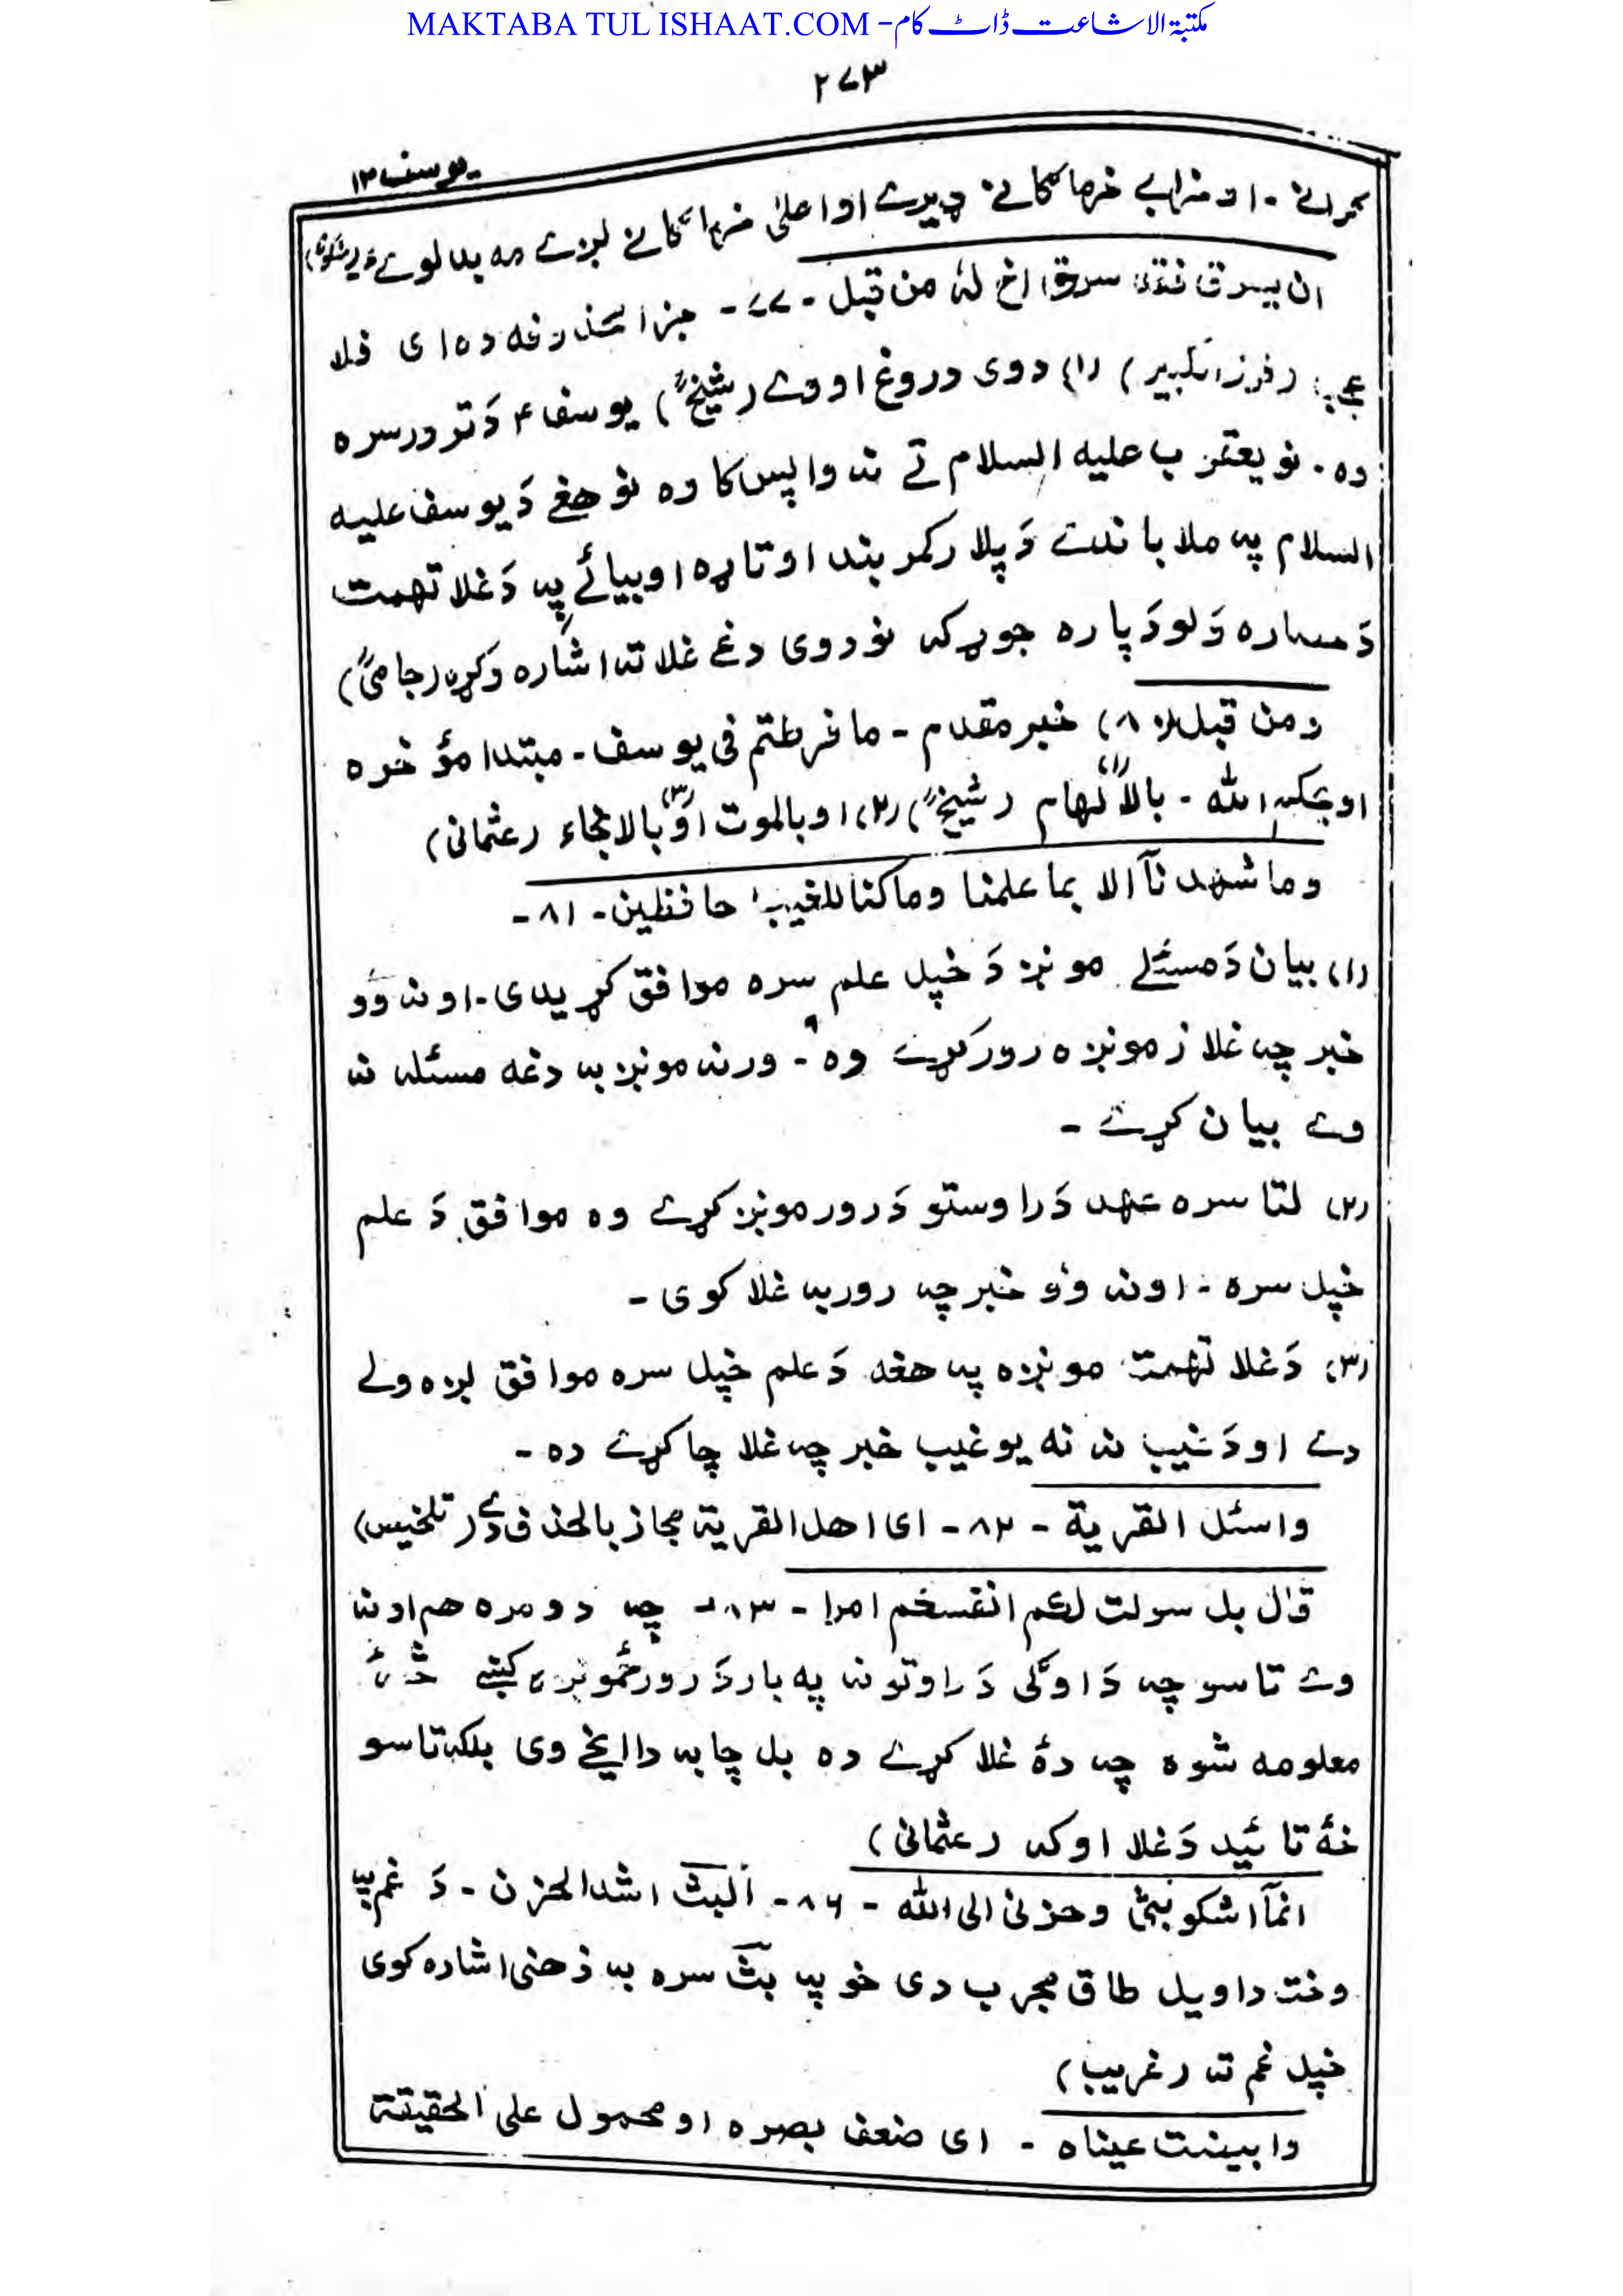 MAKTABA TUL ISHAAT.COM - مکتبۃ الاشاعت ڈاٹ کام
۲۷۳
یوسف ۱۲
او اعلیٰ لږے مه بدلوے
ان یسرق فقد سرق اخ لهٔ من قبل - ۷۷ - جزا محذوفه ده ای فلا
عجب (فوز الکبیر) (۱) دوی دروغ اووے (شیخؒ) یوسف ؑ دَ ترور سره
وه. نو یعقوب علیه السلام تے نه واپس کا وه نو هغے دَ یوسف علیه
السلام په ملا باندے دَ پلار کمربند اوتاړه او بیائے په دَ غلا تهمت
دَ پاره جوړ که نو دوی دغے غلا ته اشاره وکړه (جامیؒ)
ومن قبل (۸۰) خبر مقدم - ما فرطتم فی یوسف - مبتدا مؤخره
او یحکم الله - بالالهام (شیخؒ) (۲) او بالموت (۳) او بالانجاء (عثمانی)
وما شهدنآ الا بما علمنا وما کنا للغیب حافظین - ۸۱ -
(۱) بیان دَ مسئلے مونږ دَ خپل علم سره موافق کړیدی - او نه وو
خبر چه غلا زمونږه رور کړے وه - ورنه مونږ به دغه مسئله نه
وے بیان کړے -
(۲) لتا سره عهد دَ راوستو دَ رور مونږ کړے وه موافق دَ علم
خپل سره - او نه وو خبر چه رور به غلا کوی -
(۳) دَ غلا تهمت مونږه په هغه دَ علم خپل سره موافق لږه ولے
دے او دَ غیب نه نه یو غیب خبر چه غلا چا کړے ده -
واسئل القریة - ۸۲ - ای اهل القریة مجاز بالحذف دے (تلخیس)
قال بل سولت لکم انفسکم امرا - ۸۳ - چه دومره هم او نه
وے تاسو چه دَ اوګی دَ راوتو نه په بار دَ رور ځمونږه کښے څهٔ
معلومه شوه چه دهٔ غلا کړے ده بل چا به داایخے وی بلکه تاسو
خهٔ تائید دَ غلا اوکه (عثمانی)
انمآ اشکو بثی وحزنی الی الله - ۸۶ - البث اشد الحزن - دَ غم په
وخت دا ویل طاق مجرب دی خو په بث سره به ذهنی اشاره کوی
خپل غم ته (غریب)
وابیضت عیناه - ای ضعف بصره او محمول علی الحقیقة